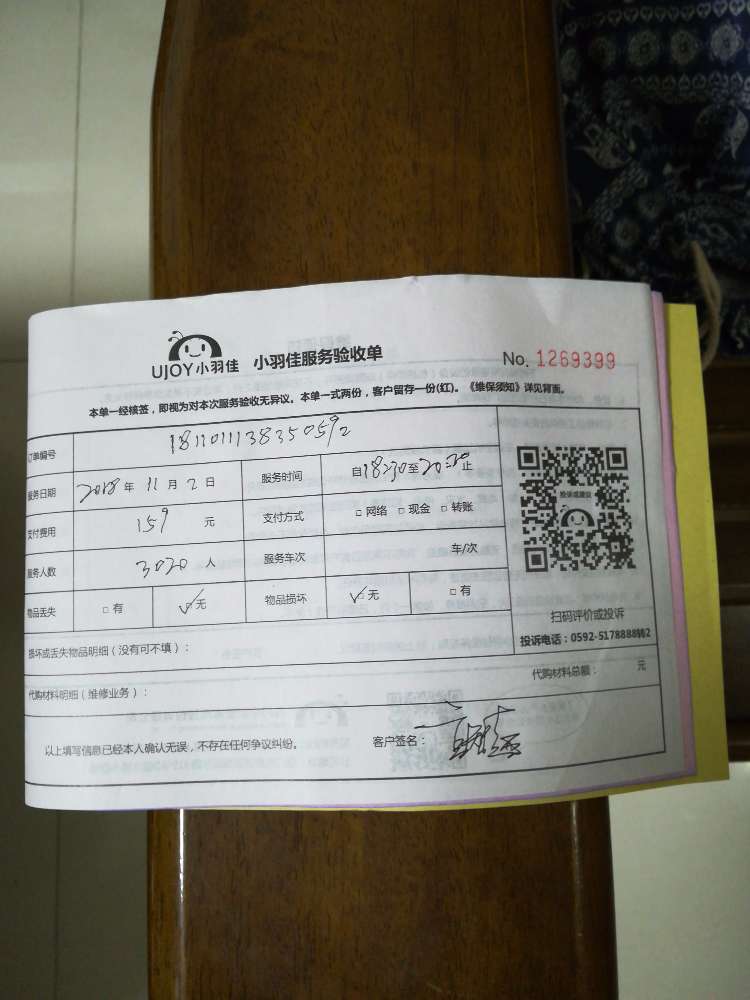 UJOY小羽佳 小羽佳服务验收单 No. 1269399
本单一经核签，即视为对本次服务验收无异议。本单一式两份，客户留存一份(红)。《维保须知》详见背面。
订单编号 1811011138350592
服务日期 2018 年 11 月 2 日 服务时间 自18:30至20:30止
支付费用 159 元 支付方式 □ 网络 □ 现金 □ 转账
投诉或建议
服务人数 3020 人 服务车次 车/次
物品丢失 □ 有 ☑ 无 物品损坏 ☑ 无 □ 有
扫码评价或投诉
投诉电话：0592-5178888转2
损坏或丢失物品明细（没有可不填）：
代购材料明细（维修业务）： 代购材料总额： 元
以上填写信息已经本人确认无误，不存在任何争议纠纷。 客户签名：